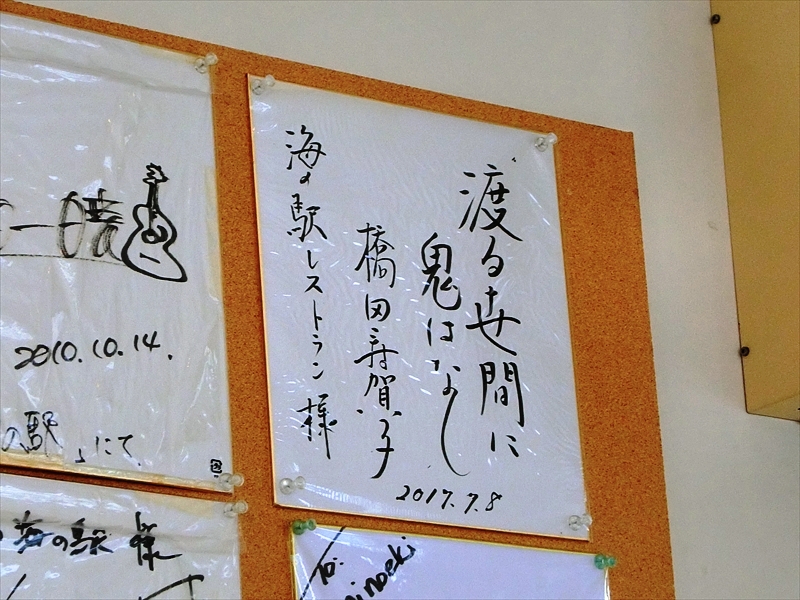 渡る世間に
鬼はなし
橋田壽賀子
海の駅レストラン様
2017.7.8
2010.10.14.
の駅」にて
海の駅 様
To:
inoeki